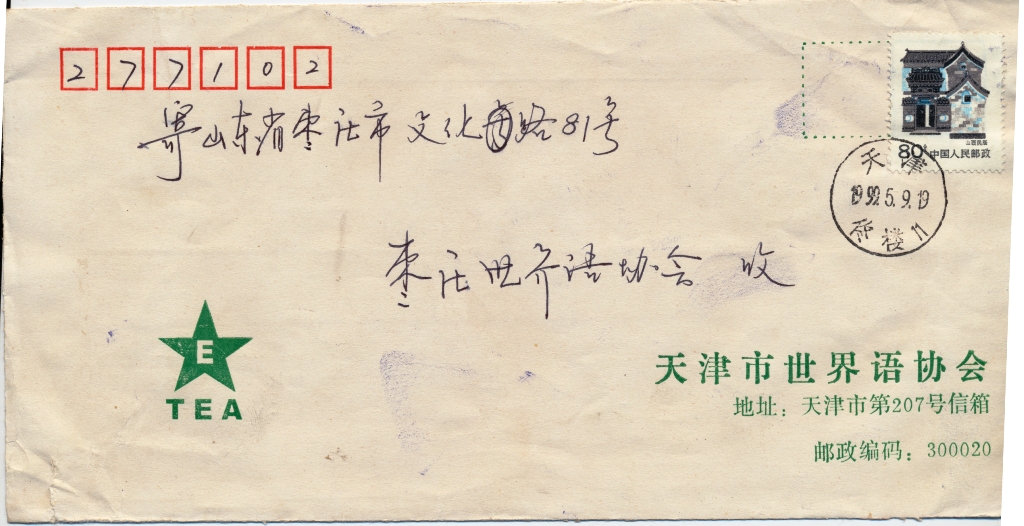 277102
寄山东省枣庄市文化南路81号
枣庄世界语协会 收
80分
中国人民邮政
山西民居
天津
1992.5.9.19
楼 11
E
TEA
天津市世界语协会
地址：天津市第207号信箱
邮政编码：300020